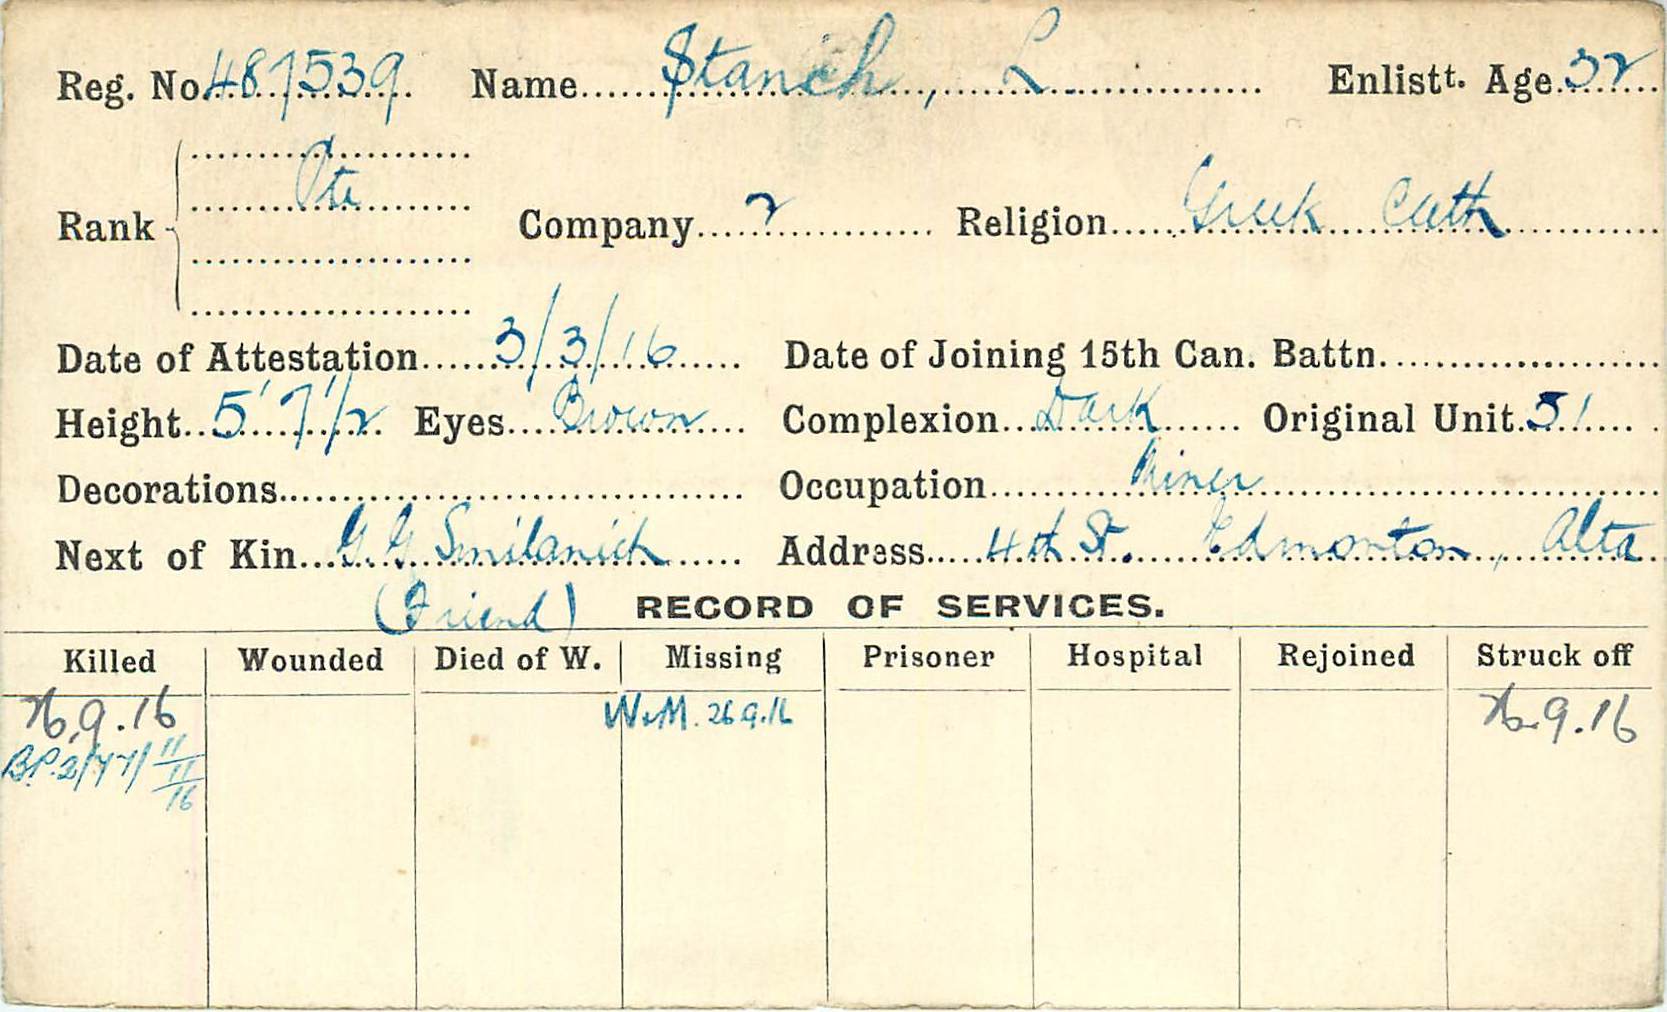 Reg. No. 487539 Name Stanich, L. Enlistt. Age 32
Rank Pte Company 2 Religion Greek Cath
Date of Attestation 3/3/16 Date of Joining 15th Can. Battn.
Height 5' 7 1/2 Eyes Brown Complexion Dark Original Unit 51
Decorations Occupation Miner
Next of Kin G. G Smilanich Address 4th St. Edmonton, Alta
(Friend) RECORD OF SERVICES.
Killed Wounded Died of W. Missing Prisoner Hospital Rejoined Struck off
26.9.16 W & M. 26.9.16 26.9.16
11/11/16